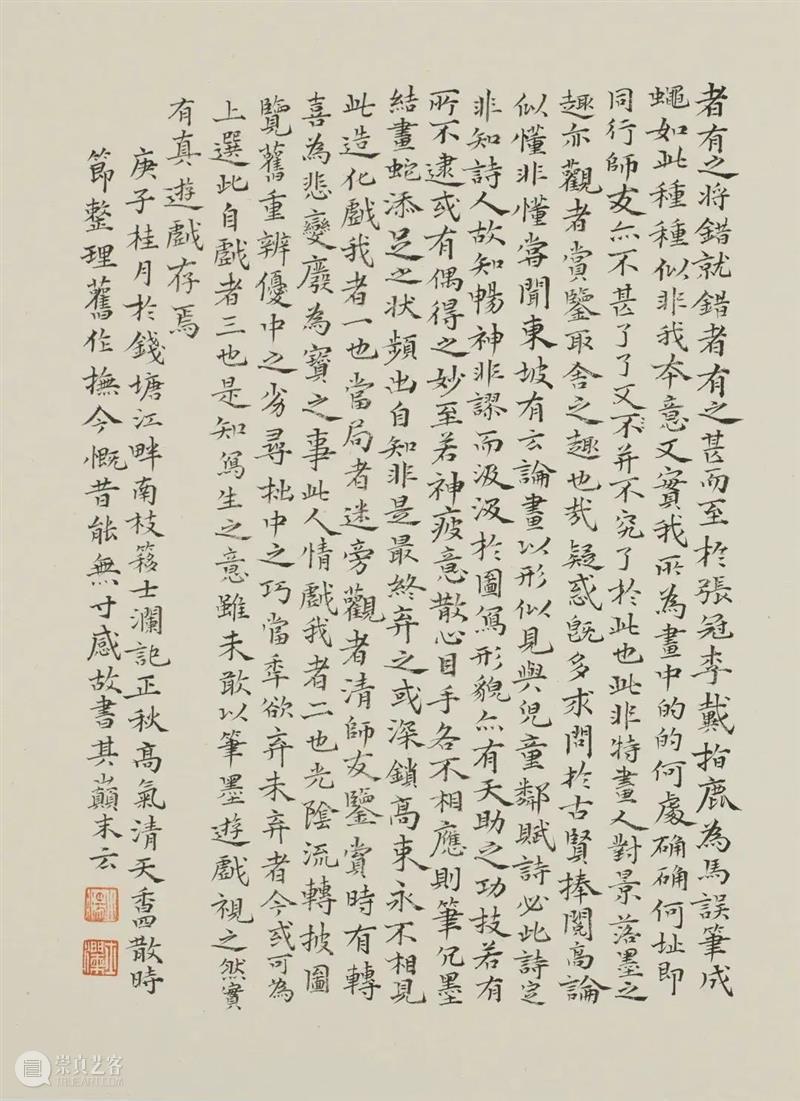 者有之将錯就錯者有之甚而至於張冠李戴指鹿為馬誤筆成
蠅如此種種似非我本意又實我所為畫中的的何處确确何址即
同行師友亦不甚了了又不并不究了於此也此非特畫人對景落墨之
趣亦觀者賞鑒取舍之趣也哉疑惑既多求問於古賢捧閱高論
似懂非懂嘗聞東坡有云論畫以形似見與兒童鄰賦詩必此詩定
非知詩人故知暢神非謬而汲汲於圖寫形貌亦有天助之功技若有
所不逮或有偶得之妙至若神疲意散心目手各不相應則筆冗墨
結畫蛇添足之狀頻出自知非是最終弃之或深鎖高束永不相見
此造化戲我者一也當局者迷旁觀者清師友鑒賞時有轉
喜為悲變廢為寶之事此人情戲我者二也光陰流轉披圖
覽舊重辨優中之劣尋拙中之巧當年欲弃未弃者今或可為
上選此自戲者三也是知寫生之意雖未敢以筆墨遊戲視之然實
有真遊戲存焉
庚子桂月於錢塘江畔南枝簃士瀾記正秋高氣清天香四散時
節整理舊作撫今慨昔能無寸感故書其巔末云
崇真艺客
TRUEART.COM